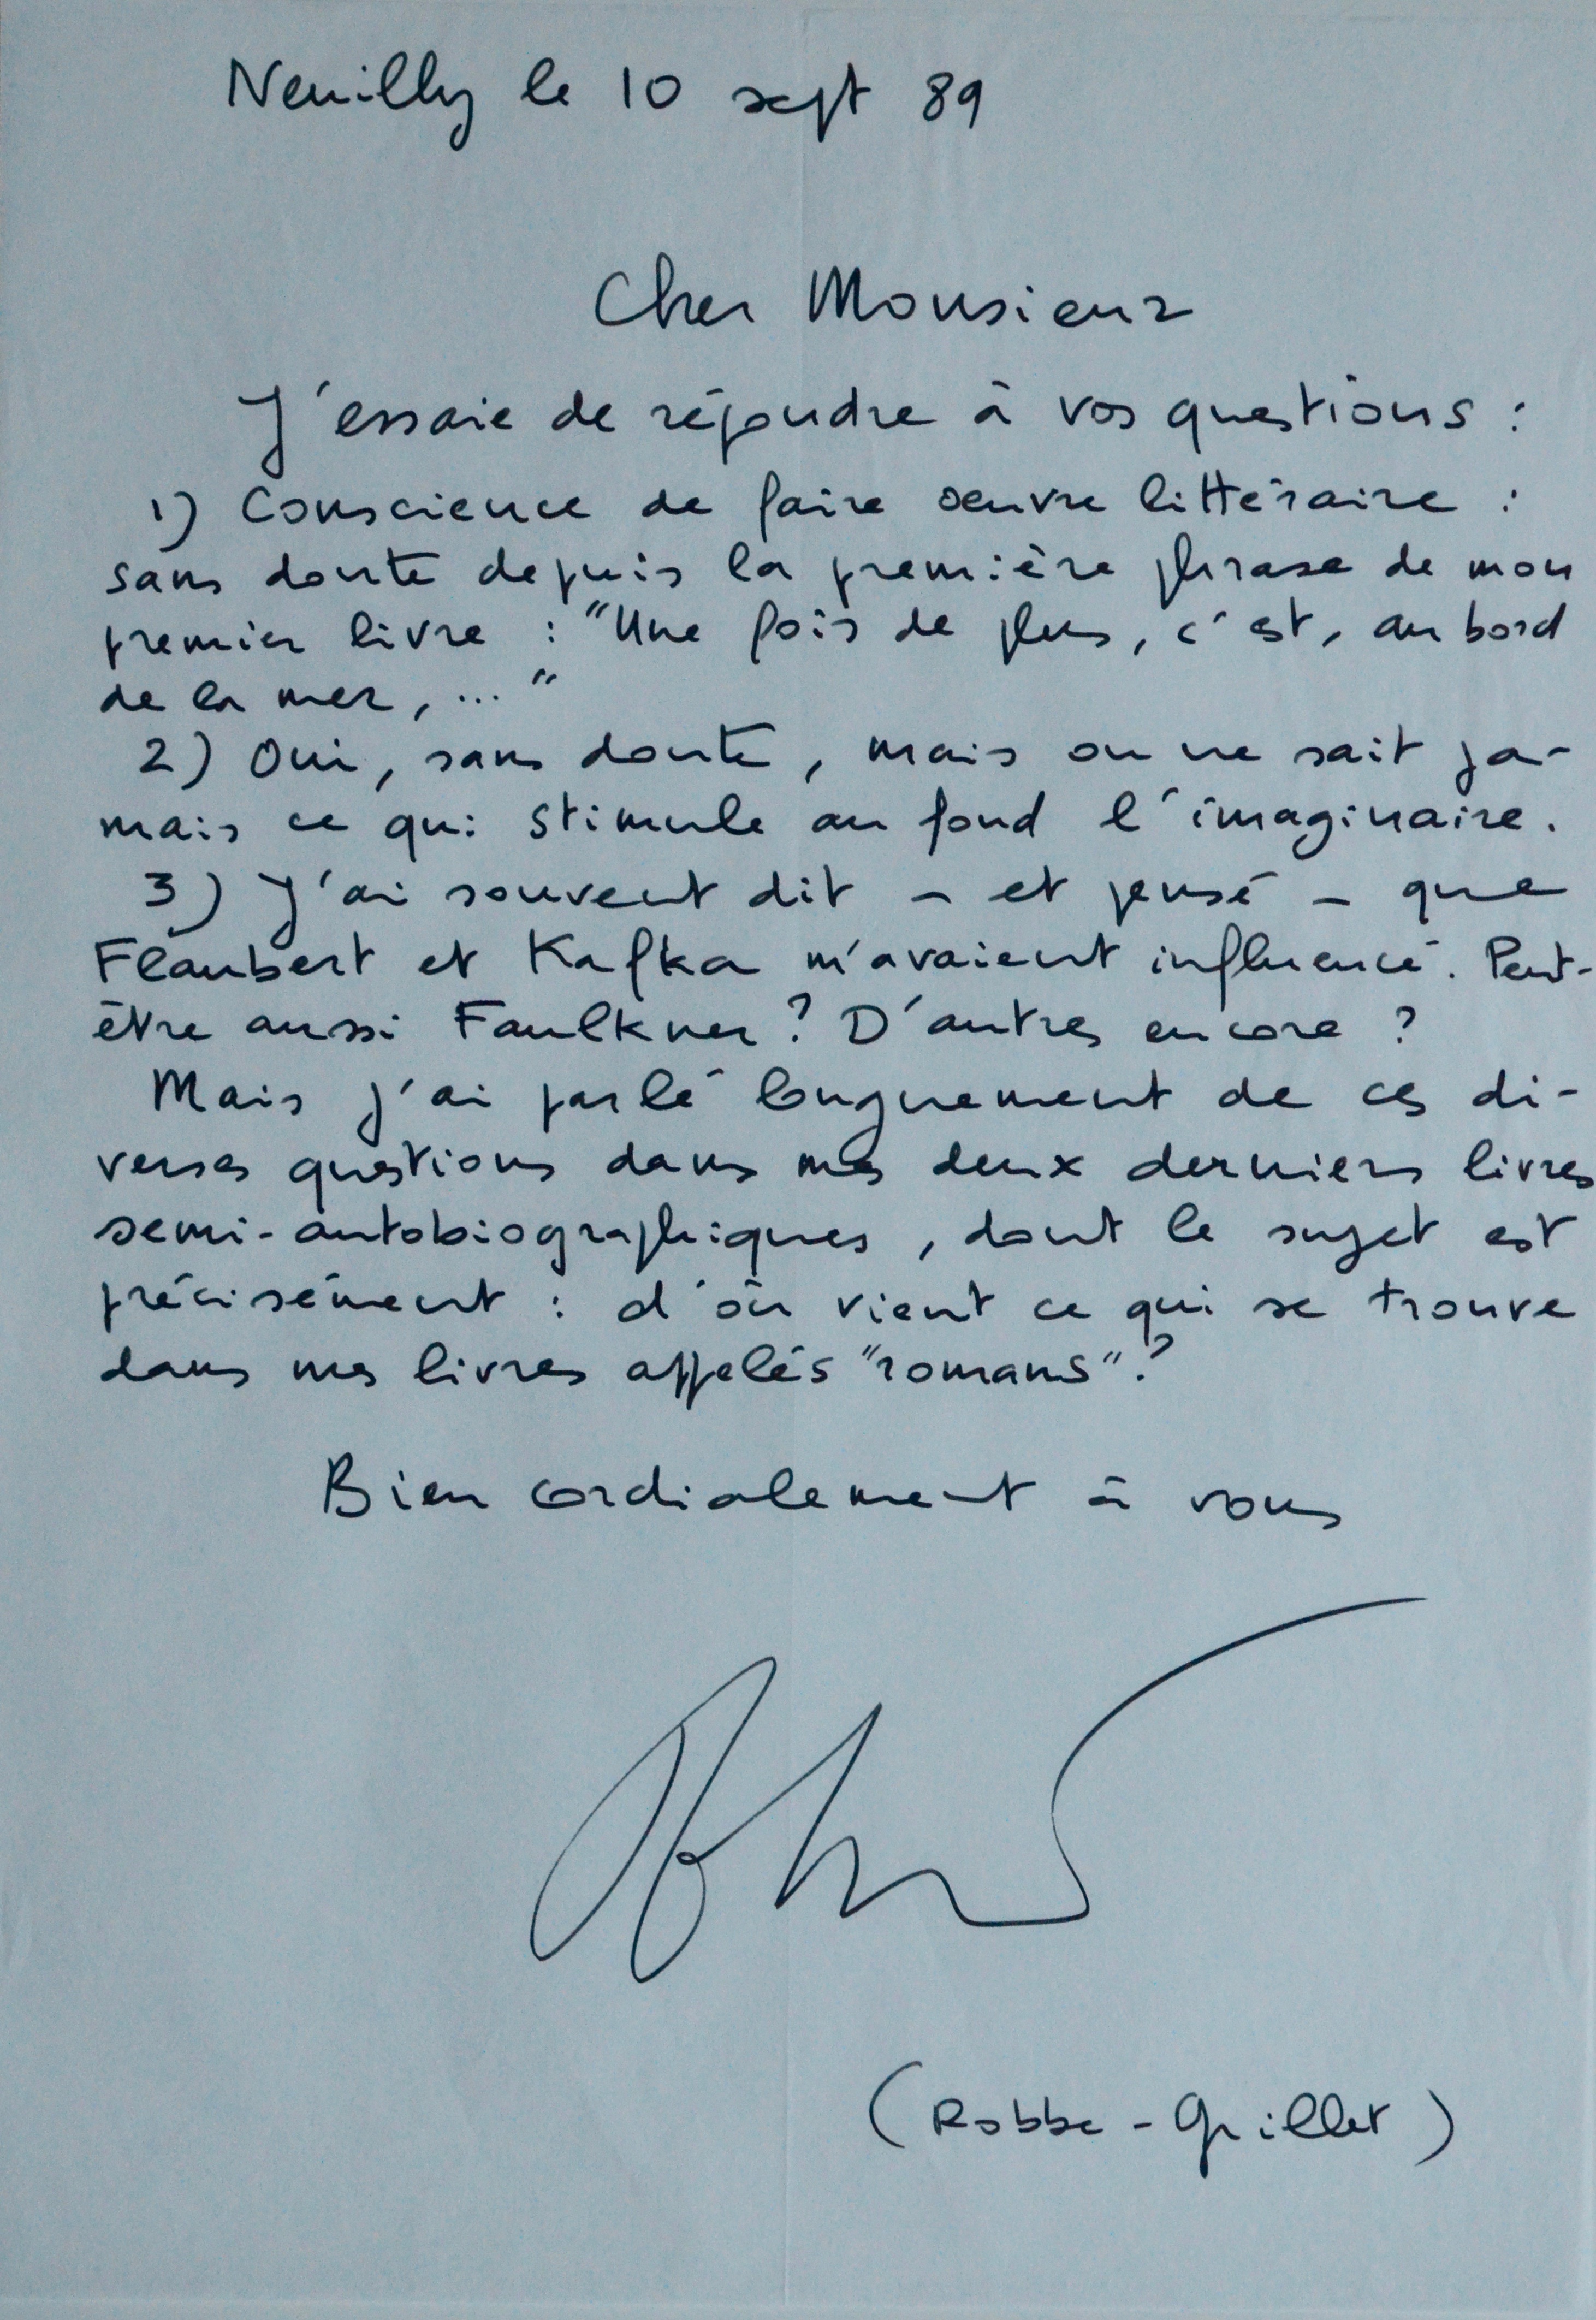 Neuilly le 10 sept 89
Cher Monsieur
J'essaie de répondre à vos questions :
1) Conscience de faire oeuvre littéraire :
sans doute depuis la première phrase de mon
premier livre : "Une fois de plus, c'est, au bord
de la mer, ... "
2) Oui, sans doute, mais on ne sait ja-
mais ce qui stimule au fond l'imaginaire.
3) J'ai souvent dit - et pensé - que
Flaubert et Kafka m'avaient influencé. Peut-
être aussi Faulkner ? D'autres encore ?
Mais j'ai parlé longuement de ces di-
verses questions dans mes deux derniers livres
semi-autobiographiques, dont le sujet est
précisément : d'où vient ce qui se trouve
dans mes livres appelés "romans" ?
Bien cordialement à vous
(Robbe-Grillet)